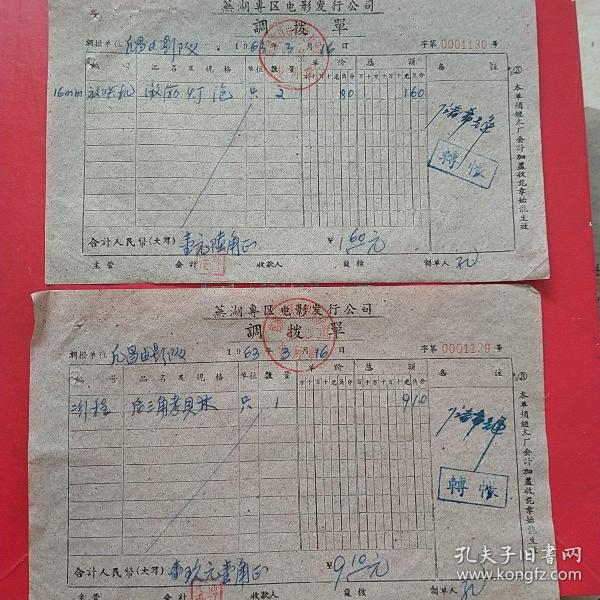 蕪湖專区电影发行公司
調撥單
調撥單位 电影队 1963年3月16日 字第0001130号
編号 品名及規格 單位 数量 單价 总額 备註
16mm 放映机 激励灯泡 只 2 80 160
轉帳
合計人民幣(大写) 壹元陸角正 ¥1.60元
主管 会計 收款人 复核 制單人 孔
本单須經本厂会計加盖收訖章始能生效
蕪湖專区电影发行公司
調撥單
調撥單位 电影队 1963年3月16日 字第0001129号
編号 品名及規格 單位 数量 單价 总額 备註
后三角考貝林 只 1 910
轉帳
合計人民幣(大写) 玖元壹角正 ¥9.10元
主管 会計 收款人 复核 制單人 孔
本单須經本厂会計加盖收訖章始能生效
孔夫子旧书网
www.kongfz.com